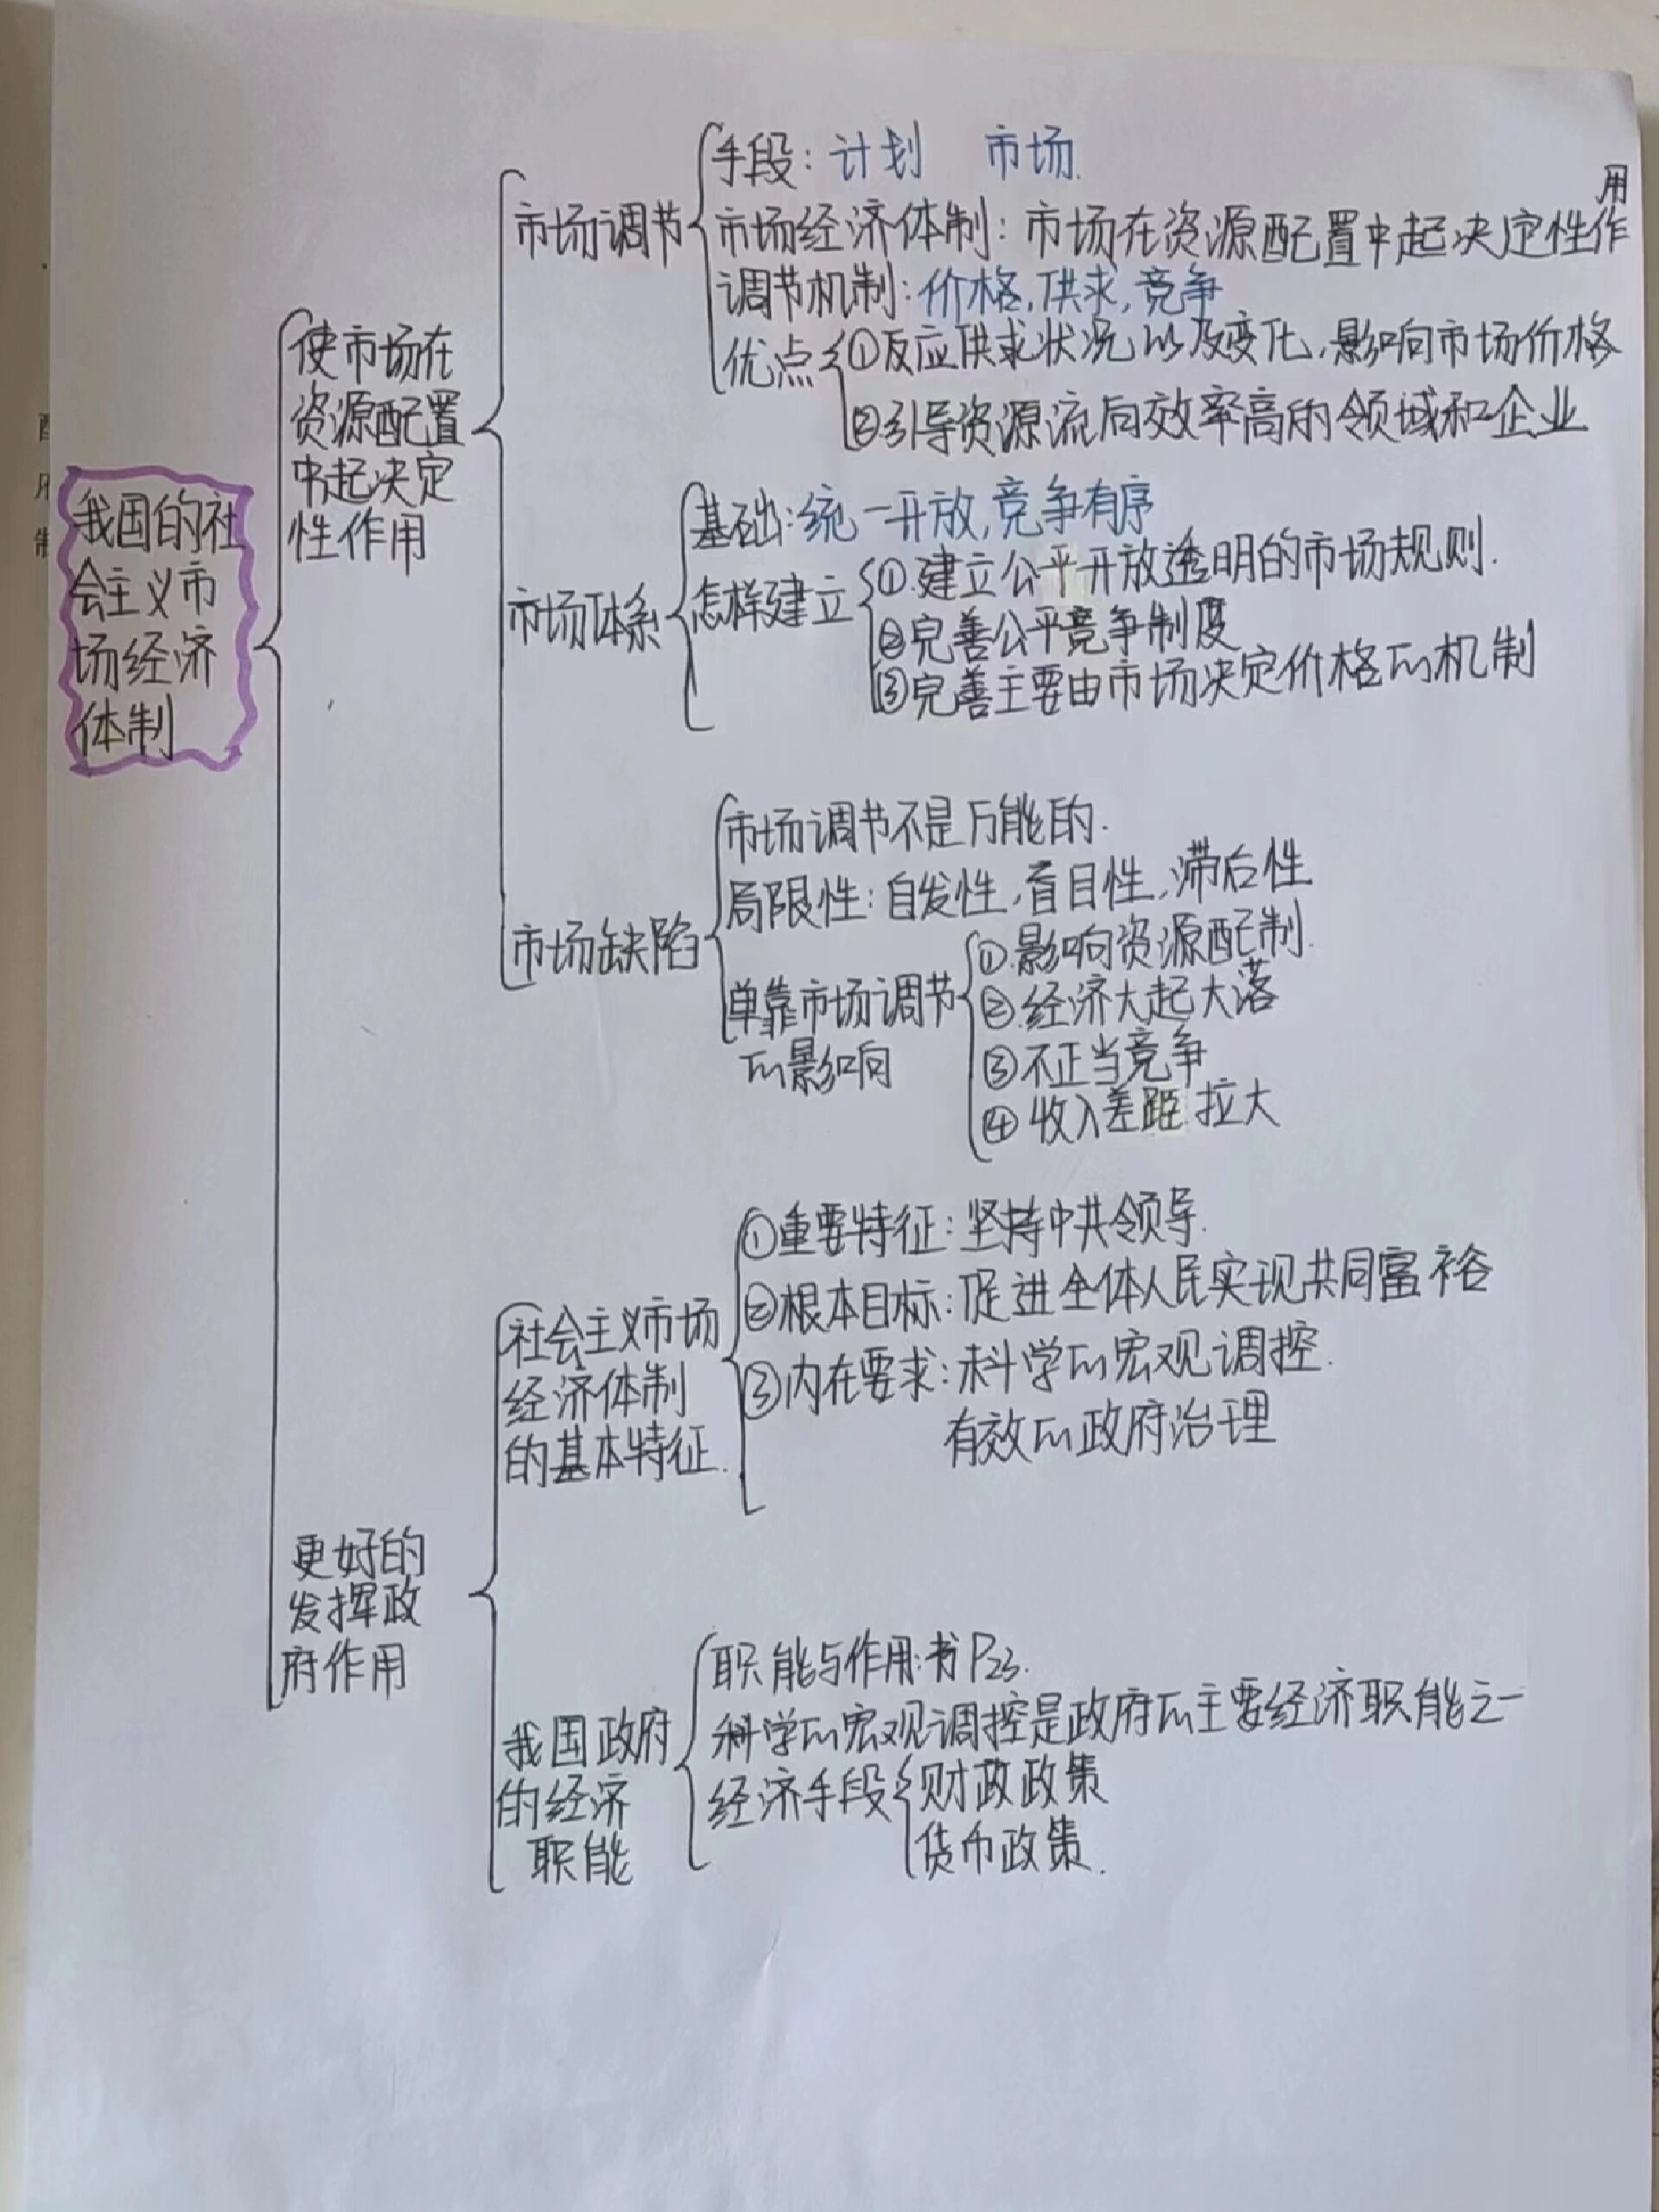 我国的社
会主义市
场经济
体制
使市场在
资源配置
中起决定
性作用
市场调节
手段：计划 市场.
用
市场经济体制：市场在资源配置中起决定性作
调节机制：价格,供求,竞争
优点
①反应供求状况以及变化,影响市场价格
②引导资源流向效率高的领域和企业
市场体系
基础：统一开放,竞争有序
怎样建立
①.建立公平开放透明的市场规则.
②完善公平竞争制度
③完善主要由市场决定价格的机制
市场缺陷
市场调节不是万能的.
局限性：自发性,盲目性,滞后性
单靠市场调节
的影响
①.影响资源配制.
②.经济大起大落
③不正当竞争
④收入差距拉大
更好的
发挥政
府作用
社会主义市场
经济体制
的基本特征.
①重要特征：坚持中共领导.
②根本目标：促进全体人民实现共同富裕
③内在要求：科学的宏观调控.
有效的政府治理
我国政府
的经济
职能
职能与作用:书P23.
科学的宏观调控是政府的主要经济职能之一
经济手段
财政政策
货币政策.